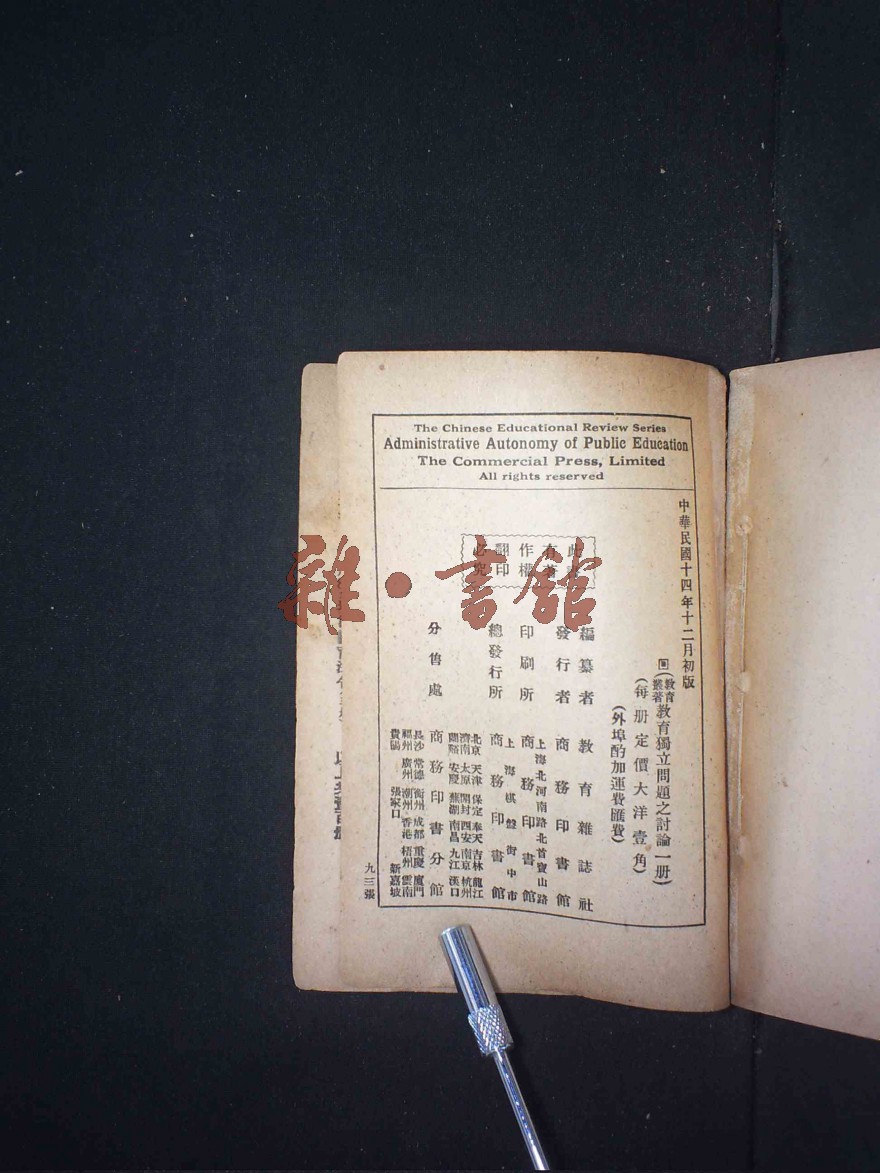 The Chinese Educational Review Series
Administrative Autonomy of Public Education
The Commercial Press, Limited
All rights reserved
中華民國十四年十二月初版
教育叢著 教育獨立問題之討論一册
(每册定價大洋壹角)
(外埠酌加運費匯費)
此書有著作權翻印必究
編纂者 教育雜誌社
發行者 商務印書館
印刷所 上海北河南路北首寶山路 商務印書館
總發行所 上海棋盤街中市 商務印書館
分售處 商務印書分館
北京 天津 保定 奉天 吉林 龍江
濟南 太原 開封 西安 南京 杭州
蘭谿 安慶 蕪湖 南昌 九江 漢口
長沙 常德 衡州 成都 重慶 廈門
福州 廣州 潮州 香港 梧州 雲南
貴陽 張家口 新嘉坡
九三張
雜·書館